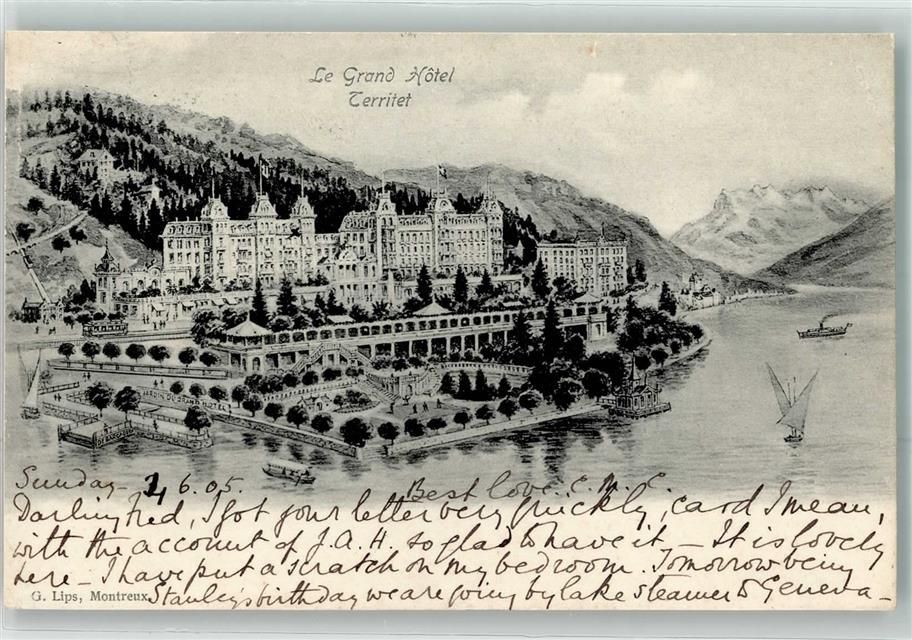 Le Grand Hôtel
Territet
JARDIN DU GRAND HÔTEL
Sunday 6.05. Best love. E. M. C.
Darling Fred, I got your letter very quickly, card I mean,
with the account of J.A.H. so glad to have it – It is lovely
here – I have put a scratch on my bedroom. Tomorrow being
G. Lips, Montreux. Stanley's birthday we are going by lake steamer to Geneva –